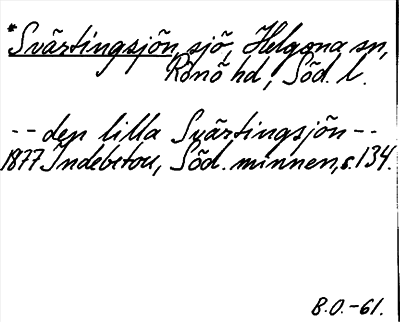 *Svärtingsjön, sjö, Helgona sn,
Rönö hd, Söd. l.
-- den lilla Svärtingsjön --
1877 Indebetou, Söd. minnen, s. 134.
B.O. -61.